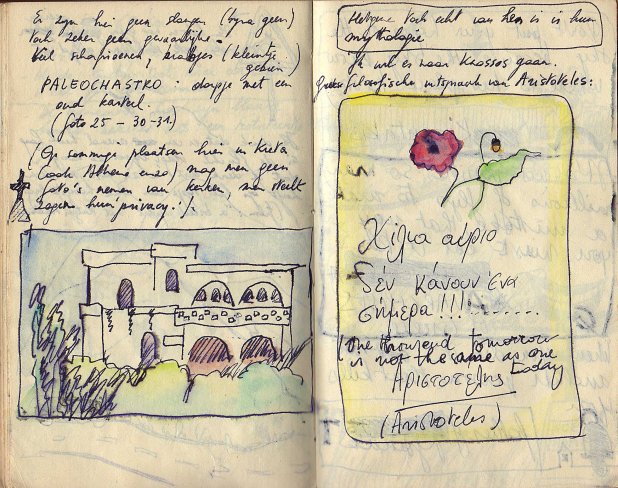 Er zijn hier geen slangen (bijna geen)
toch zeker geen gevaarlijke.
Wel schorpioenen, krabbjes (kleintje
PALEOCHASTRO : dorpje met een
oud kasteel.
(foto 25 - 30 - 31)
(Op sommige plaatsen hier in Kreta
(ook Athene enzo) mag men geen
foto's nemen van kerken, men steelt
zogezegd hun privacy !
Hetgene toch echt van hen is is hun
mythologie
Ik wil es naar Knossos gaan.
Grote filosofische uitspraak van Aristoteles:
Χίλια αύριο
δέν κάνουν ένα
σήμερα !!!
(One thousand tomorrow
is not the same as one
today
Αριστοτέλης
(Aristoteles)